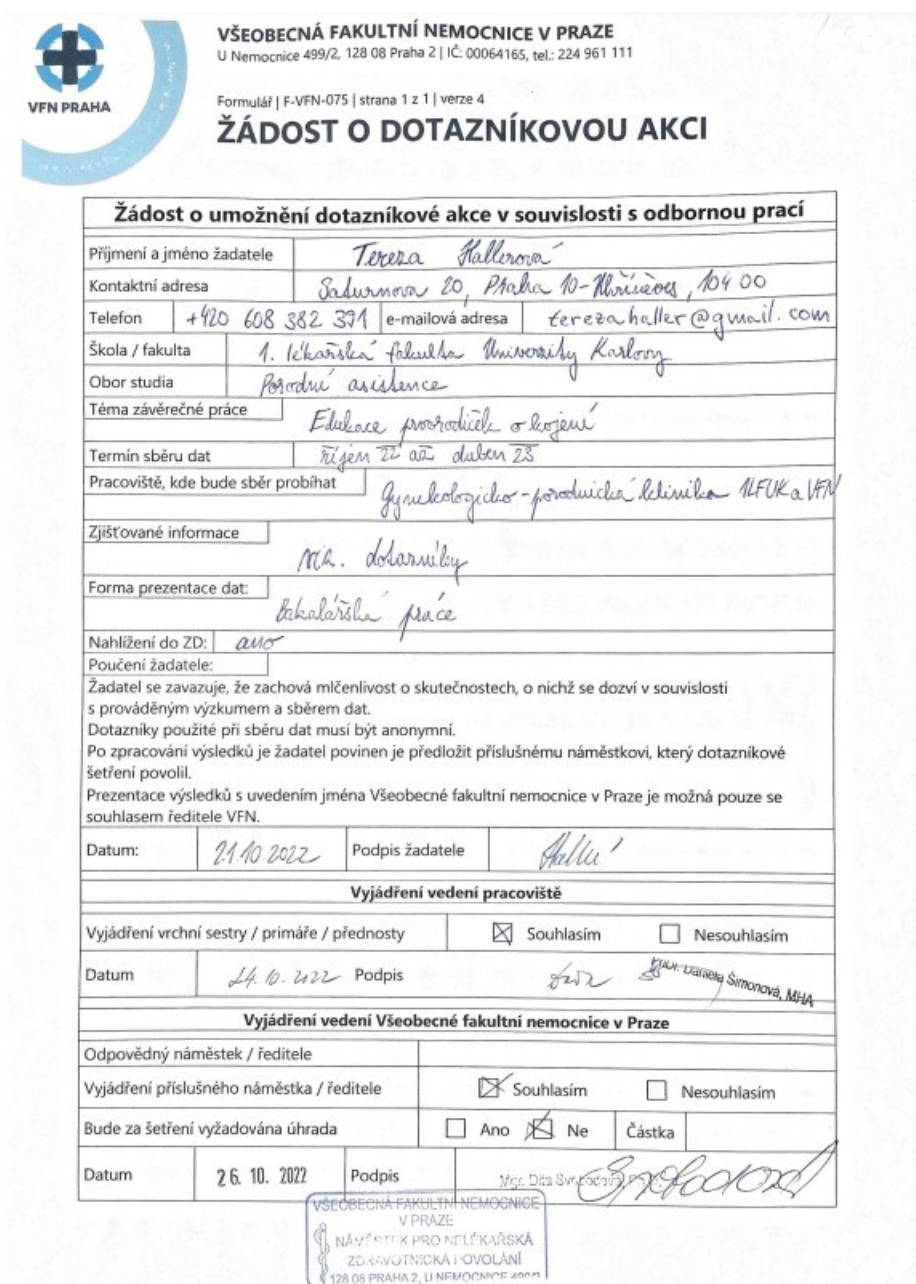 VŠEOBECNÁ FAKULTNÍ NEMOCNICE V PRAZE
U Nemocnice 499/2, 128 08 Praha 2 | IČ: 00064165, tel.: 224 961 111
VFN PRAHA
Formulář | F-VFN-075 | strana 1 z 1 | verze 4
ŽÁDOST O DOTAZNÍKOVOU AKCI
Žádost o umožnění dotazníkové akce v souvislosti s odbornou prací
Příjmení a jméno žadatele Tereza Hallerová
Kontaktní adresa Saturnova 20, Praha 10-Uhříněves, 104 00
Telefon +420 608 382 371 e-mailová adresa terezahaller@gmail.com
Škola / fakulta 1. lékařská fakulta Univerzity Karlovy
Obor studia Porodní asistence
Téma závěrečné práce
Edukace prvorodiček o kojení
Termín sběru dat říjen 22 až duben 23
Pracoviště, kde bude sběr probíhat Gynekologicko-porodnická klinika 1LFUK a VFN
Zjišťované informace
viz. dotazníky
Forma prezentace dat:
bakalářská práce
Nahlížení do ZD: ano
Poučení žadatele:
Žadatel se zavazuje, že zachová mlčenlivost o skutečnostech, o nichž se dozví v souvislosti
s prováděným výzkumem a sběrem dat.
Dotazníky použité při sběru dat musí být anonymní.
Po zpracování výsledků je žadatel povinen je předložit příslušnému náměstkovi, který dotazníkové
šetření povolil.
Prezentace výsledků s uvedením jména Všeobecné fakultní nemocnice v Praze je možná pouze se
souhlasem ředitele VFN.
Datum: 21.10.2022 Podpis žadatele
Vyjádření vedení pracoviště
Vyjádření vrchní sestry / primáře / přednosty Souhlasím Nesouhlasím
Datum 24.10.2022 Podpis Daniela Šimonová, MHA
Vyjádření vedení Všeobecné fakultní nemocnice v Praze
Odpovědný náměstek / ředitele
Vyjádření příslušného náměstka / ředitele Souhlasím Nesouhlasím
Bude za šetření vyžadována úhrada Ano Ne Částka
Datum 26. 10. 2022 Podpis Mgr. Dita Svobodová
VŠEOBECNÁ FAKULTNÍ NEMOCNICE
V PRAZE
NÁMĚSTEK PRO NELÉKAŘSKÁ
ZDRAVOTNICKÁ POVOLÁNÍ
128 08 PRAHA 2, U NEMOCNICE 499/2